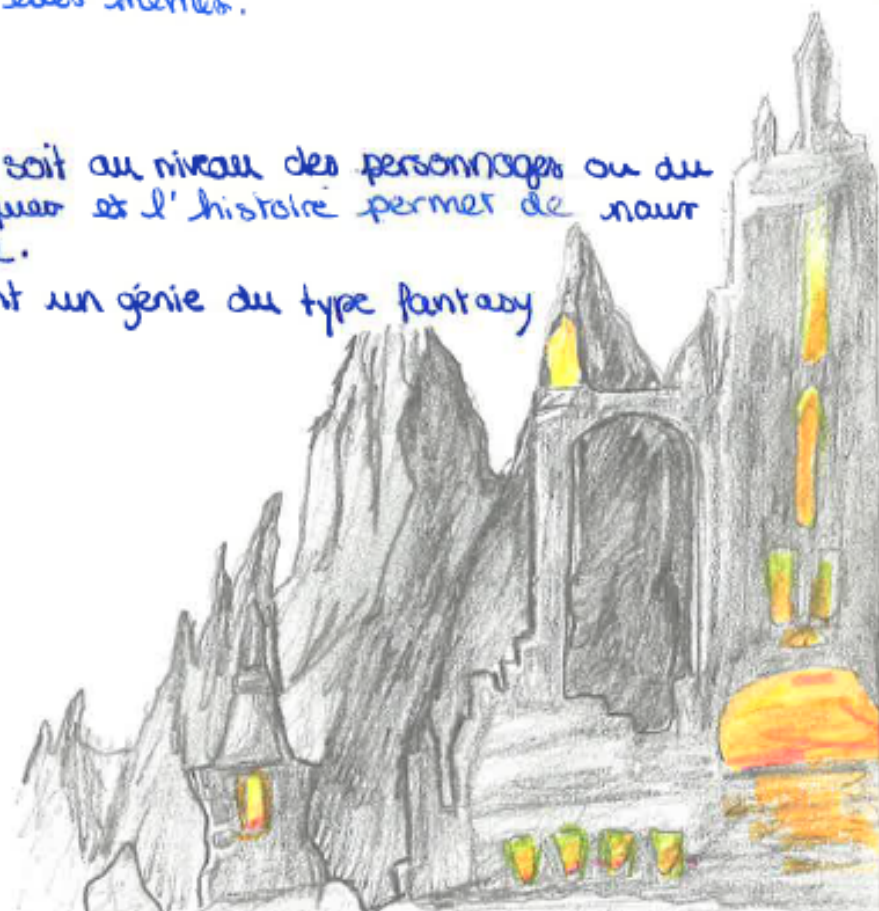 mêmes.
soit au niveau des personnages ou du
et l'histoire permet de nour
un génie du type fantasy